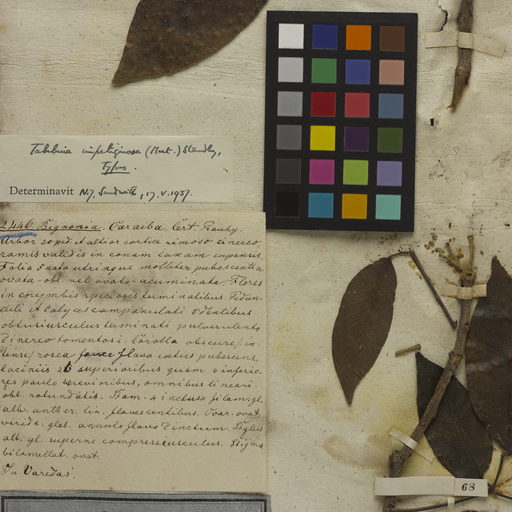 Tabebuia impetiginosa (Mart.) Standley,
Typus.
Determinavit N.Y. Sandwith, 17.V.1937.
2446 Bignonia Caraiba. Cert. Pauhy.
Arbor 20 ped. et altior cortice rimoso cinereo
ramis validis in conam laxam expansis.
Folia 5 nata utrinque molliter pubescentia
ovata-obl. vel ovato-acuminata. Flores
in corymbis speciosis terminalibus. Pedun-
culi et calyces campanulati 5 dentibus
obtusiusculus terminati pulverulento
cinereo tomentosi. Corolla obscure
rosea fauce flava intus pubescens
laciniis 2 superioribus quam 3 inferio-
res paulo brevioribus, omnibus lineari-
obl. rotundatis. Stam. 4 inclusa filam. gl.
alb. anther. lin. flavescentibus. Ovar. ovat.
viride, glab. annulo flavo cinctum. Stylus
alb. gl. superne compressiusculus. Stigma
bilamellat. ovat.
In Varedas.
68